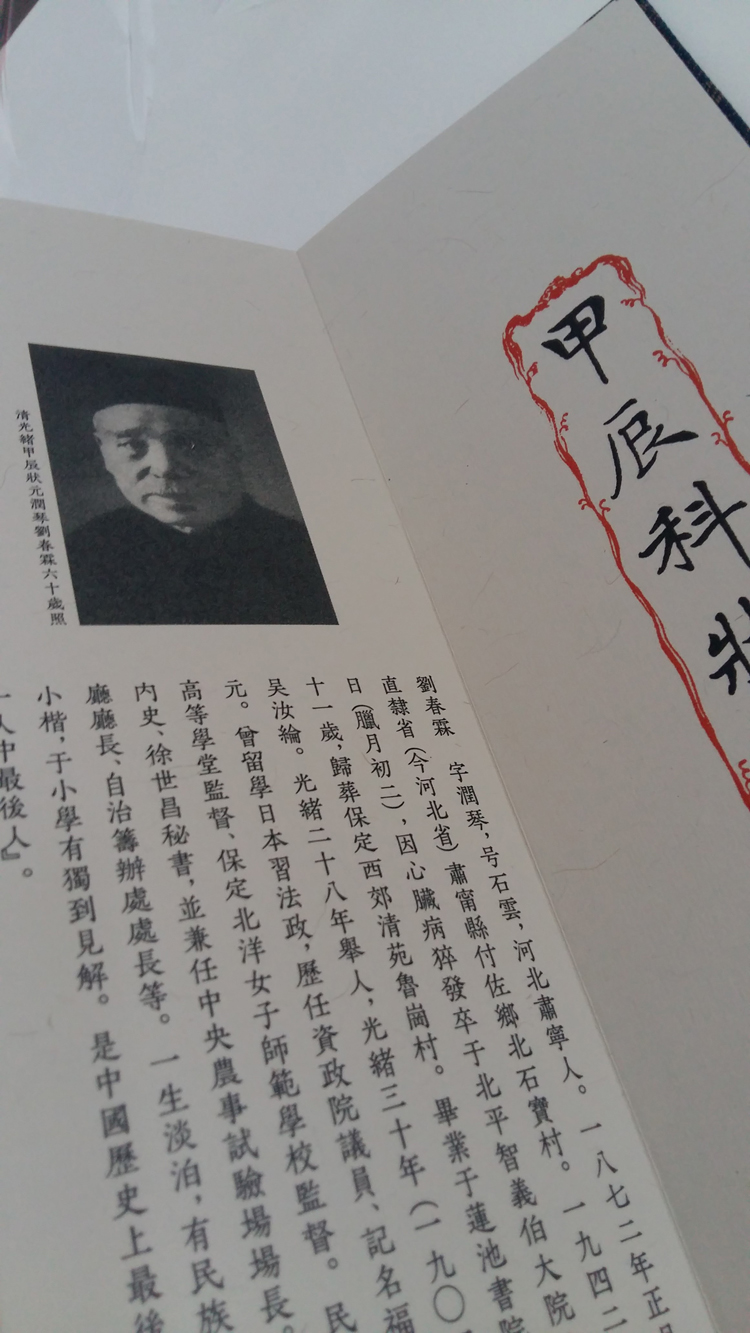 甲辰科狀
清光緒甲辰狀元潤琴劉春霖六十歲照
劉春霖 字潤琴，号石雲，河北肅寧人。一八七二年正月
直隸省（今河北省）肅甯縣付佐鄉北石寶村。一九四二
日（臘月初二），因心臟病猝發卒于北平智義伯大院
十一歲，歸葬保定西郊清苑魯崗村。畢業于蓮池書院
吴汝綸。光緒二十八年舉人，光緒三十年（一九〇
元。曾留學日本習法政，歷任資政院議員、記名福
高等學堂監督、保定北洋女子師範學校監督。民
内史、徐世昌秘書，並兼任中央農事試驗場場長。
廳廳長、自治籌辦處處長等。一生淡泊，有民族
小楷，于小學有獨到見解。是中國歷史上最後
人中最後人』。